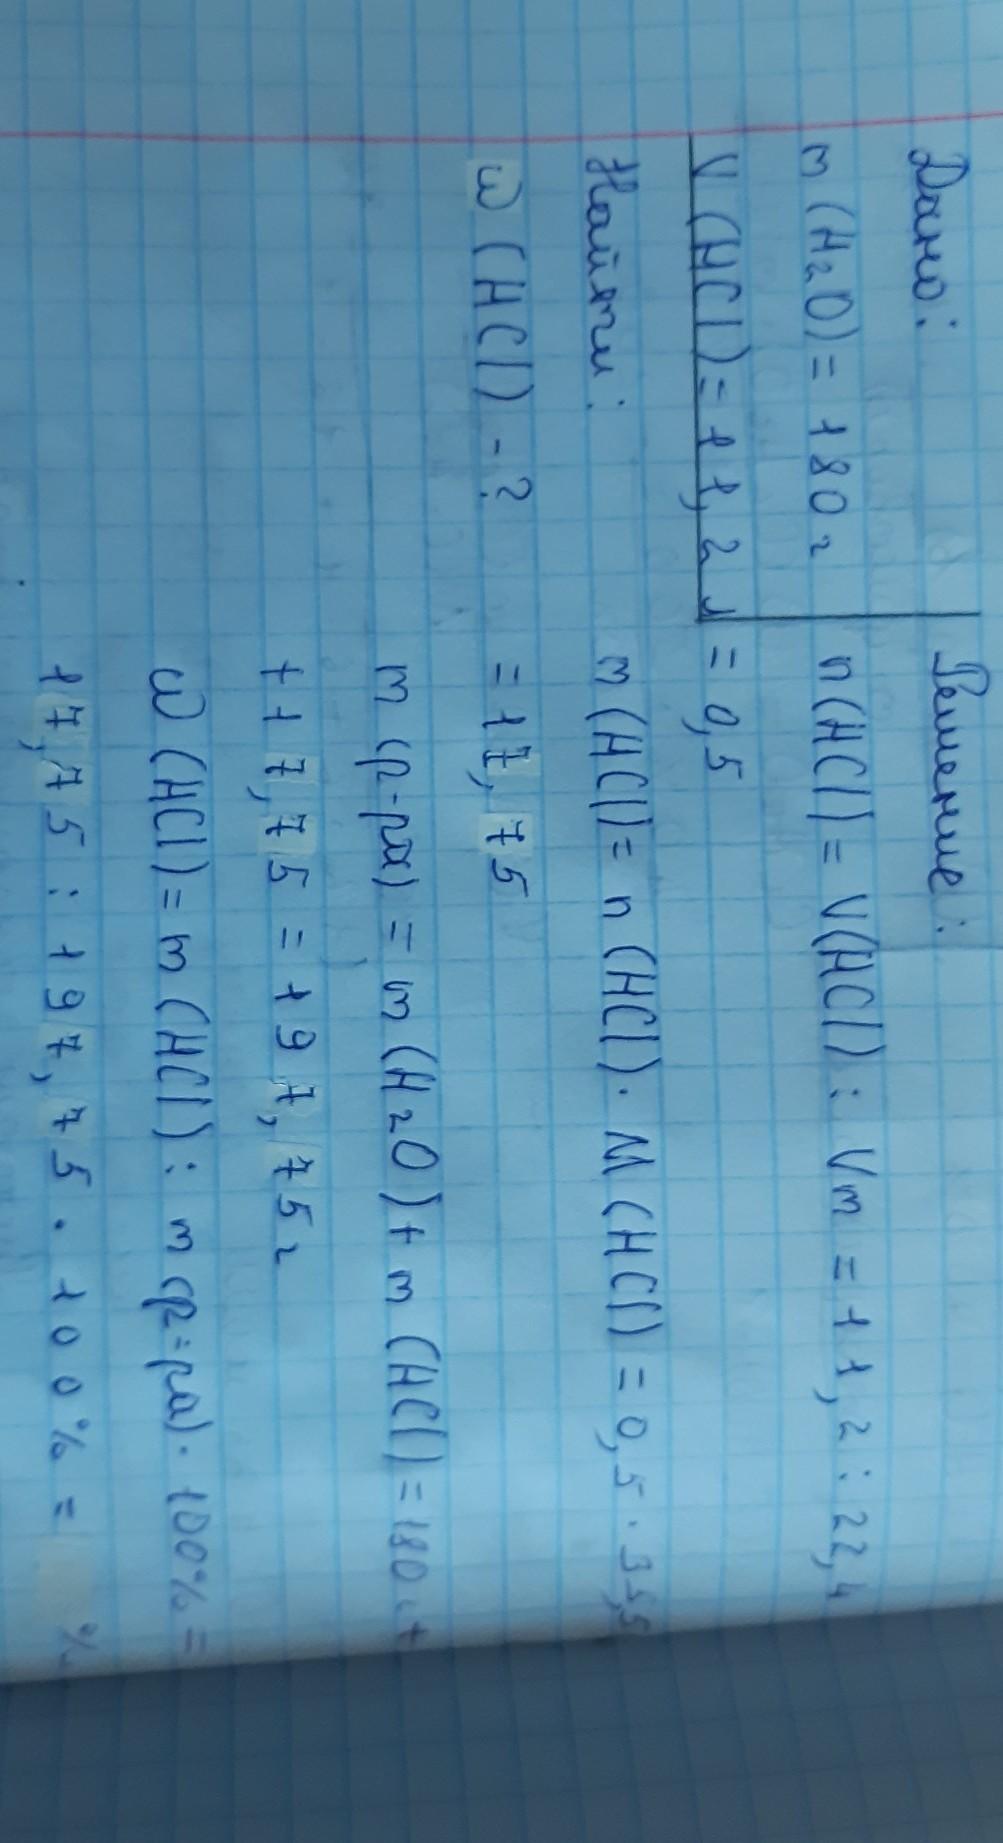 Дано:
m (H2O) = 180 г
V (HCl) = 11,2 л
Найти:
ω (HCl) - ?
Решение:
n(HCl) = V(HCl) : Vm = 11,2 : 22,4
= 0,5
m (HCl) = n (HCl) · M (HCl) = 0,5 · 35,5
= 17,75
m (р-ра) = m (H2O) + m (HCl) = 180 г +
+ 17,75 = 197,75 г
ω (HCl) = m (HCl) : m (р-ра) · 100% =
17,75 : 197,75 · 100% = %